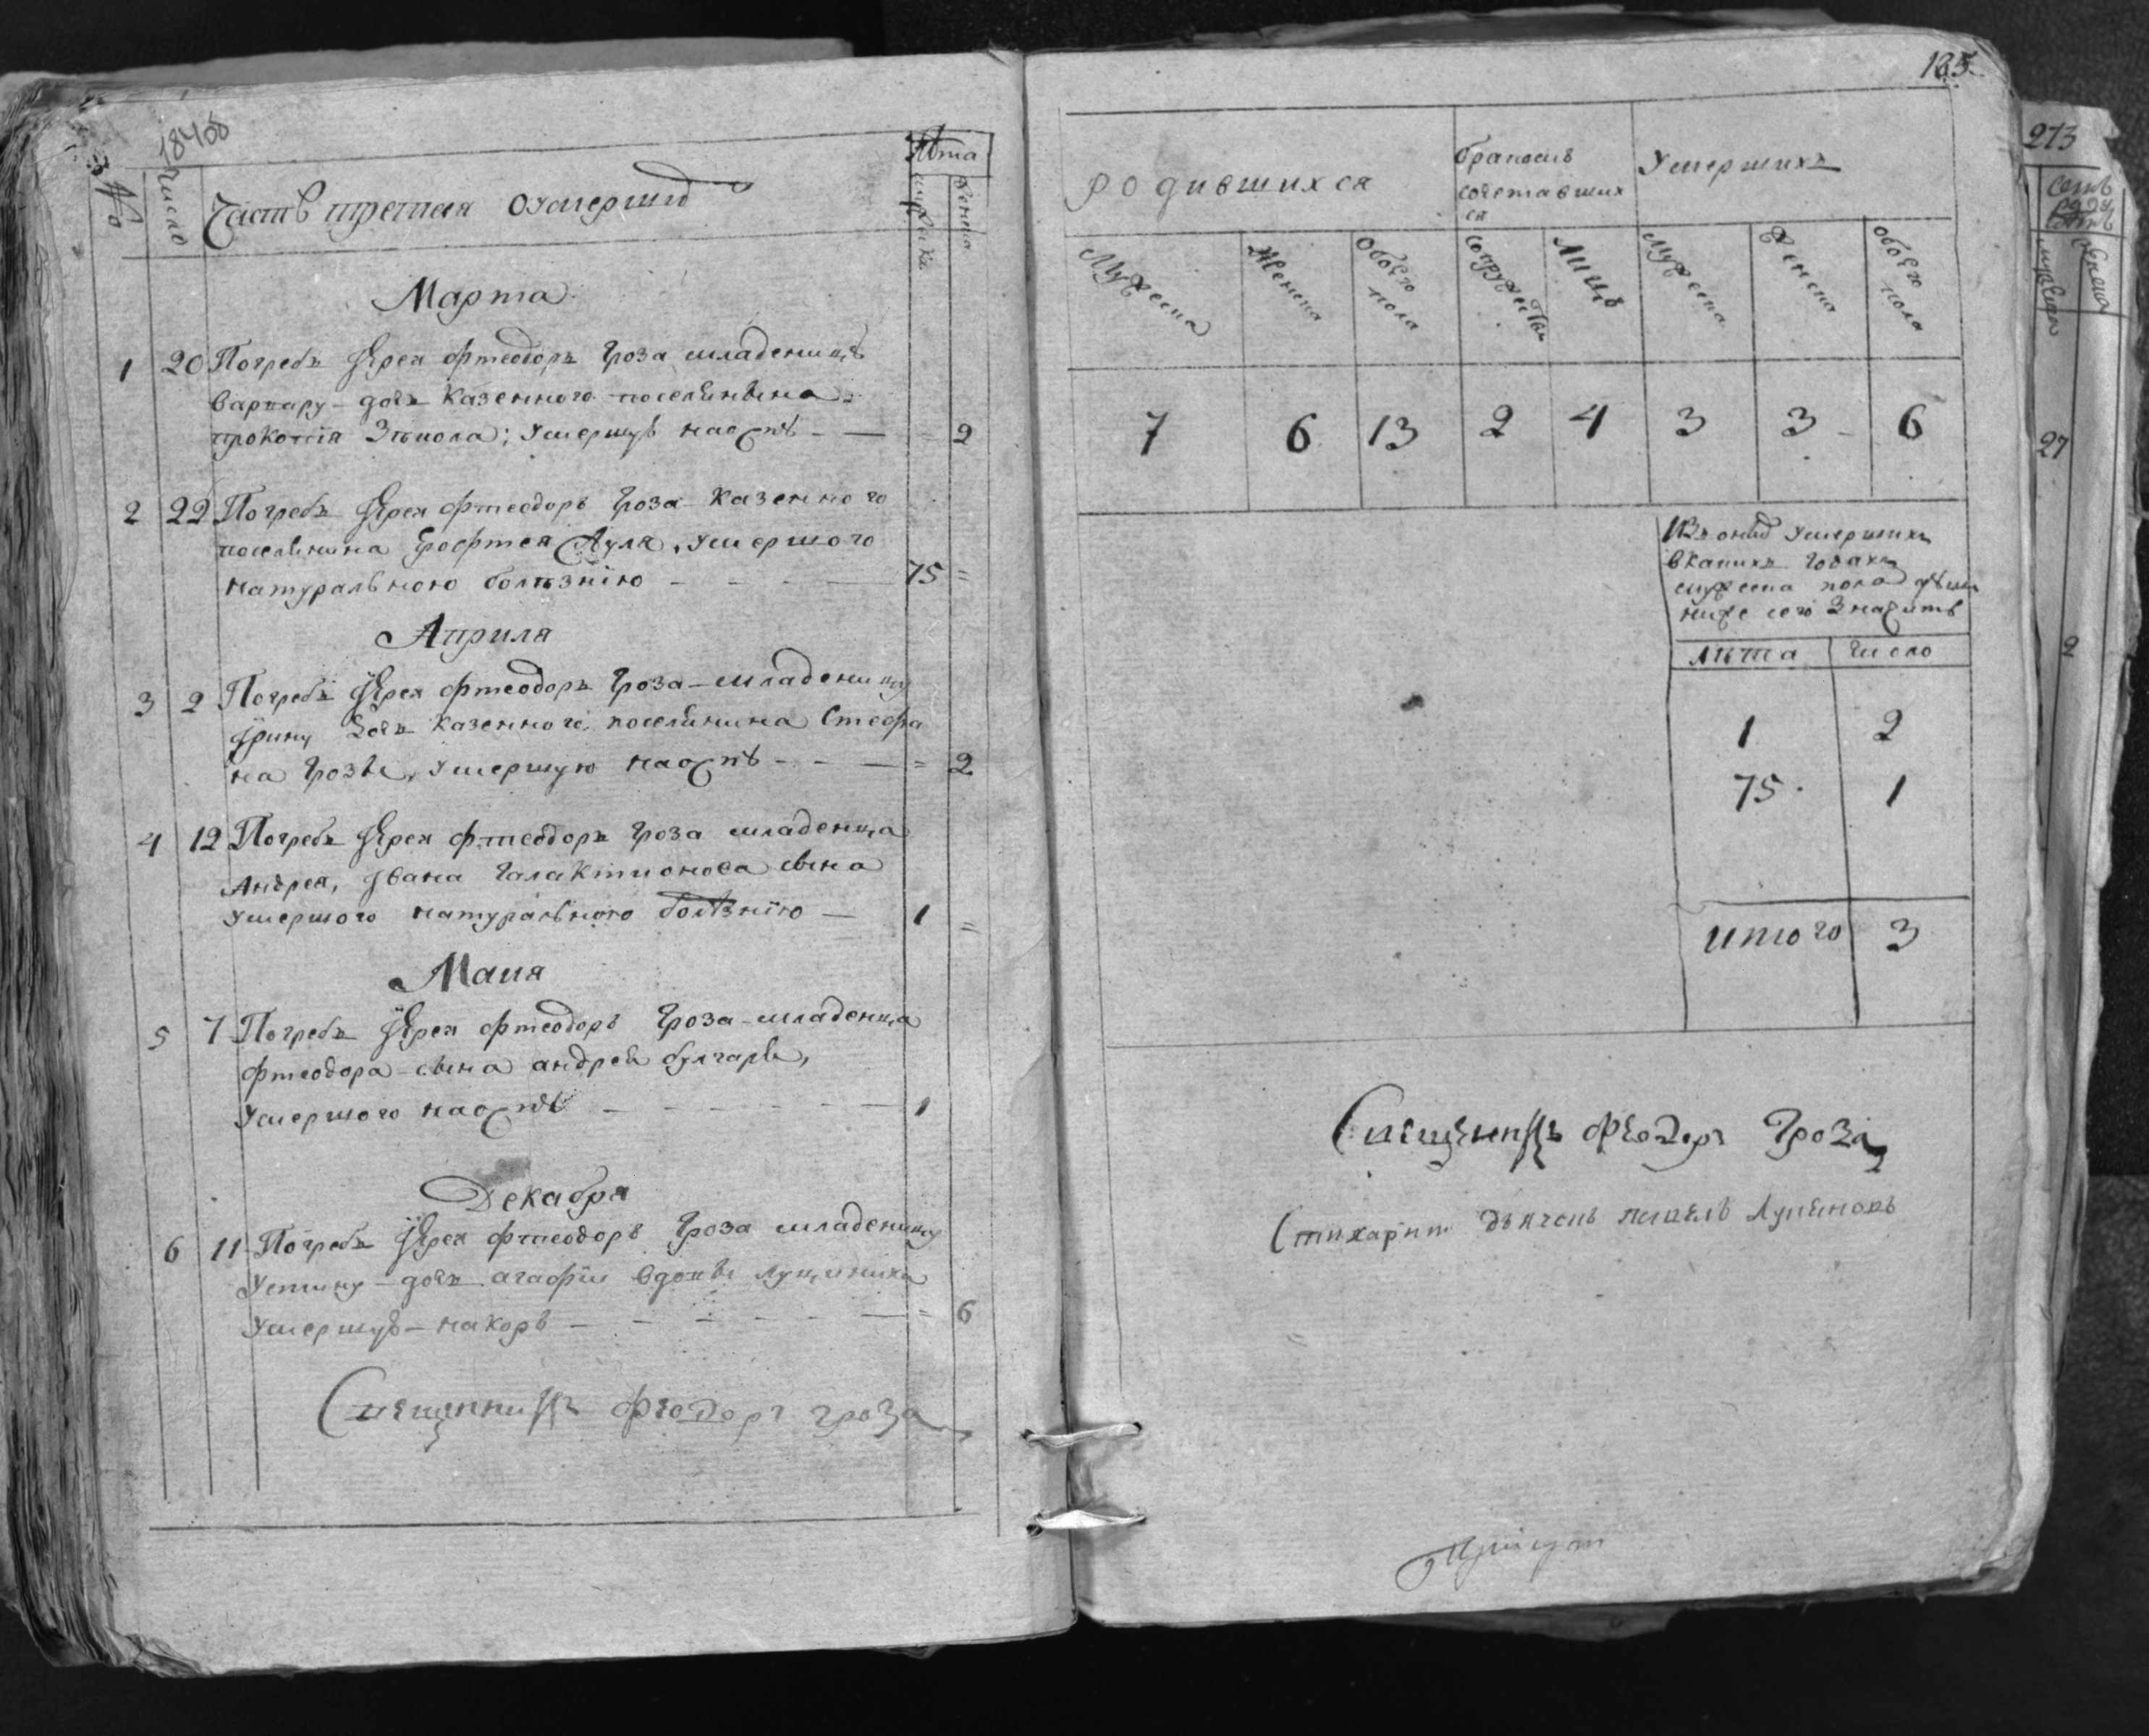 №
Число
Часть третая оумершид
Лѣта
мужеска
женска
Марта
1 20 Погребъ Іерея фтеодоръ Гроза младеницѣ
варвару дочь казенного поселянина
прокопія умершую на оспѣ — = 2
2 22 Погребъ Іерея фтеодоръ Гроза казенного
поселянина умершого
натуральною болѣзнію — 75 =
Априля
3 2 Погребъ Іерея фтеодоръ Гроза младеницу
Ірину дочь казенного поселянина Стефа
на Грозы, умершую на оспѣ — = 2
4 12 Погребъ Іерея фтеодоръ Гроза младенца
Андрея, Івана Галактионова сына
умершого натуральною болѣзнію — 1 =
Маия
5 7 Погребъ Іерея фтеодоръ Гроза младенца
фтеодора сына андреи булгары,
умершого на оспѣ — 1
Декабря
6 11 Погребъ Іерея фтеодоръ Гроза младеницу
Устину дочь агафіи вдовы
умершую на коръ — = 6
Священникъ Феодоръ Гроза
185
родившихся
бракомъ
сочетавших
ся
Умершихъ
Мужеска
Женска
Обоего пола
Супружествъ
Лицъ
Мужеска
Женска
обоего пола
7 6 13 2 4 3 3 6
Изъ онид Умершихъ
в какихъ годахъ
мужеска пола
ниже сего значитъ
лѣта число
1 2
75 1
итого 3
Священникъ Феодоръ Гроза
Стихарни дьячокъ
273
27
2